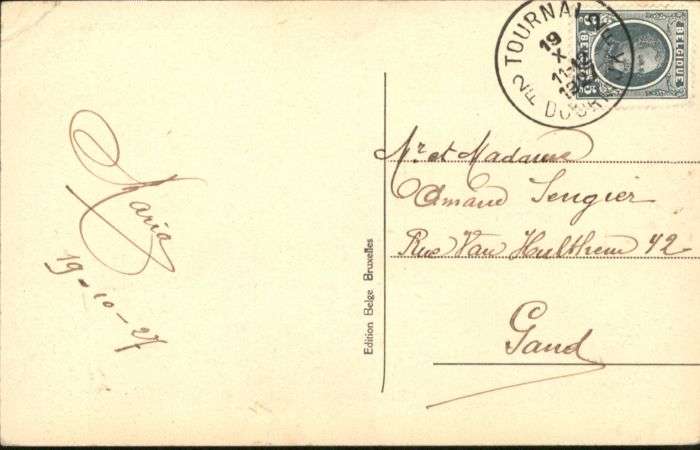 Maria
19-10-27
Edition Belge Bruxelles
TOURNAI
19
X
11-
BELGIQUE
Mr et Madame
Amand Sengier
Rue Van Hulthem 42-
Gand